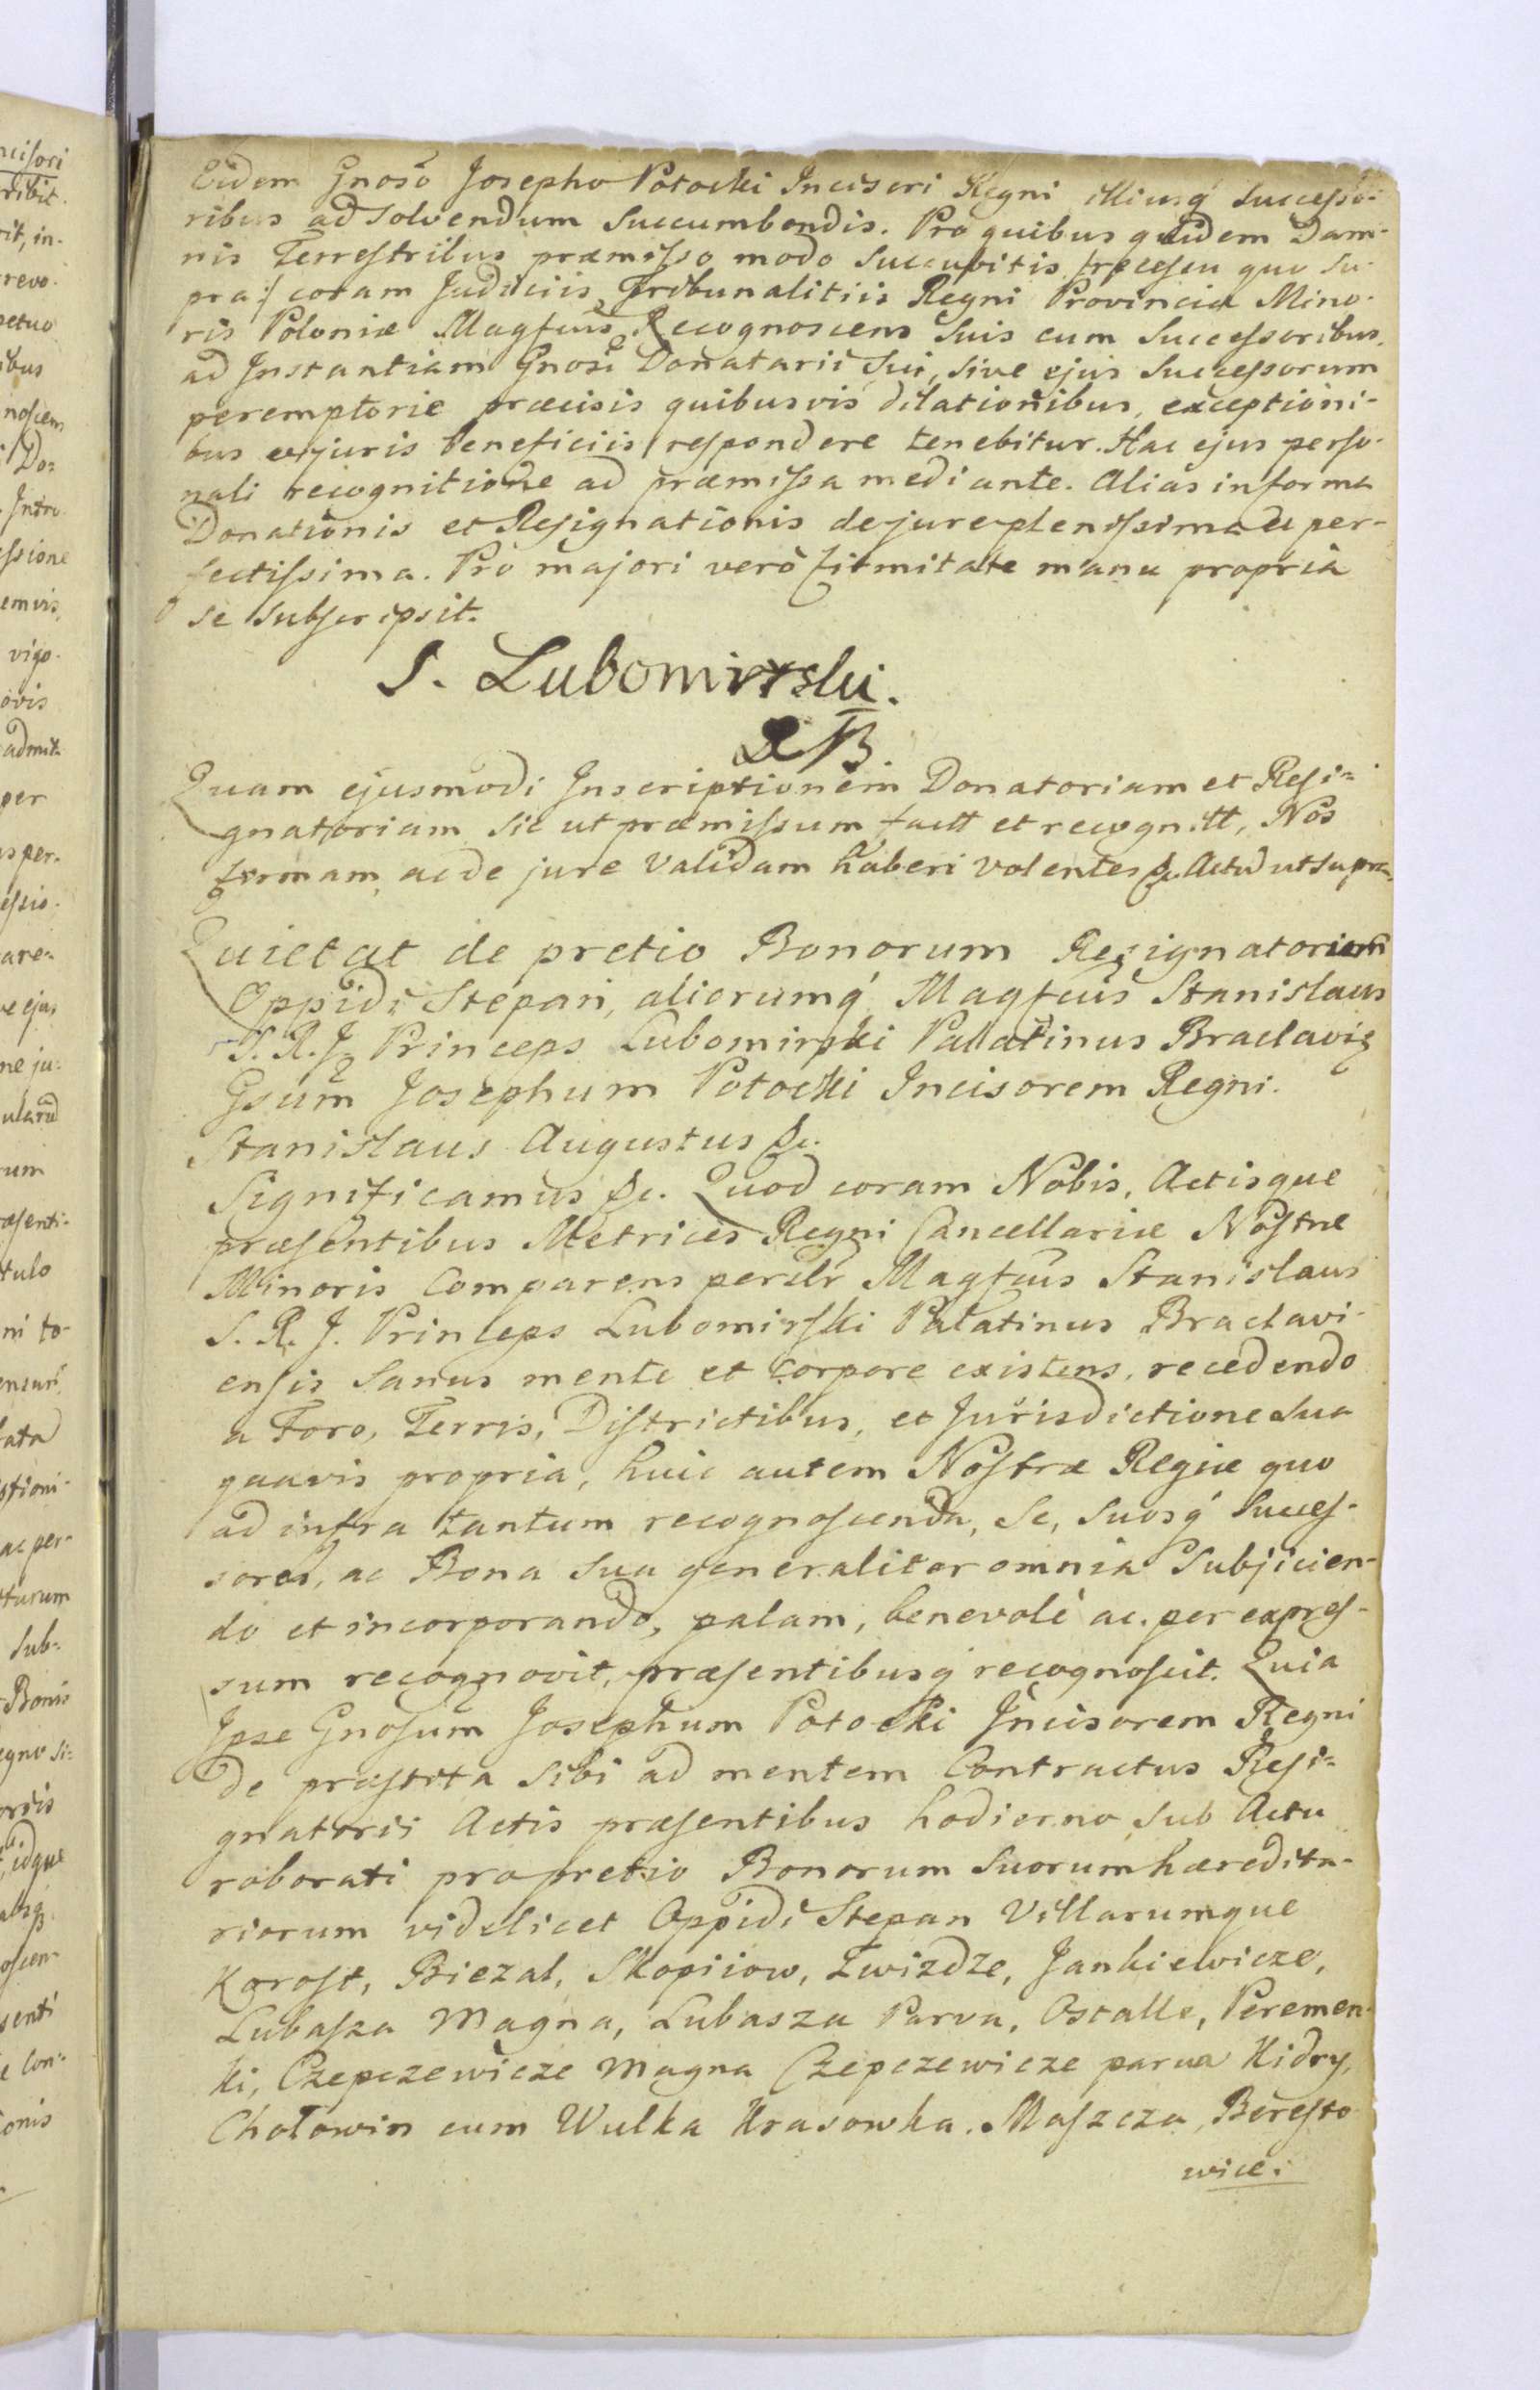 Eidem Gnoso Josepho Potocki Incisori Regni illiusq́ Successo-
ribus ad solvendum succumbendis. Pro quibus quidem Dam-
nis Terrestribus præmisso modo succubitis, recessu quo su-
pra :/ coram Judiciis Tribunalitiis Regni Provinciæ Mino-
ris Poloniæ Magfcus Recognoscens suis cum Successoribus,
ad Instantiam Gnosi Donatarii sui, sive ejus Successorum
peremptorie præcisis quibusvis dilationibus, exceptioni-
bus juris beneficiis respondere tenebitur. Hac ejus perso-
nali recognitione ad præmissa mediante. Alias in forma
Donationis et Resignationis de jure plenissima et per-
fectissima. Pro majori verò firmitate manu propria
se subscripsit.
S. Lubomirski.
Quam ejusmodi Inscriptionem Donatoriam et Resi-
gnatoriam sic ut præmissum factt et recognitt, Nos
firmam, ac de jure validam haberi volentes &c. Actu ut supra.
Quietat de pretio Bonorum Resignatorum
Oppidi Stepan, aliorumq́ Magfcus Stanislaus
S. R. J. Princeps Lubomirski Palatinus Braclavię
Gsum Josephum Potocki Incisorem Regni.
Stanislaus Augustus &c.
Significamus &c. Quod coram Nobis, Actisque
præsentibus Metrices Regni Cancellariæ Nostræ
Minoris Comparens persłr Magfcus Stanislaus
S. R. J. Princeps Lubomirski Palatinus Braclavi-
ensis sanus mente et corpore existens, recedendo
a Foro, Terris, Districtibus, et Jurisdictione sua
quavis propria, huic autem Nostræ Regiæ quo
ad infra tantum recognoscenda, Se, Suosq́ Succes-
sores, ac Bona sua generaliter omnia subjicien-
do et incorporando, palam, benevolè ac per expres-
sum recognovit, præsentibusq́ recognoscit. Quia
Ipse Gnosum Josephum Potocki Incisorem Regni
de præstita sibi ad mentem Contractus Resi-
gnatorii Actis præsentibus hodierno sub Actu
roborati pro pretio Bonorum suorum hæredita-
riorum videlicet Oppidi Stepan Villarumque
Korost, Biezal, Skopiiow, Zwizdze, Jankiewicze,
Lubasza Magna, Lubasza Parva, Ostalle, Peremen-
ki, Czepczewicze Magna Czepczewicze parva Kidry,
Chołowin cum Wulka Krasowka, Maszcza, Beresto-
wice.